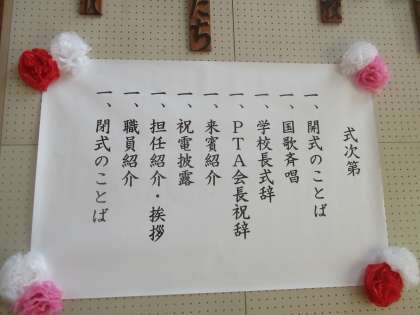 たち
式次第
一、開式のことば
一、国歌斉唱
一、学校長式辞
一、PTA会長祝辞
一、来賓紹介
一、祝電披露
一、担任紹介・挨拶
一、職員紹介
一、閉式のことば